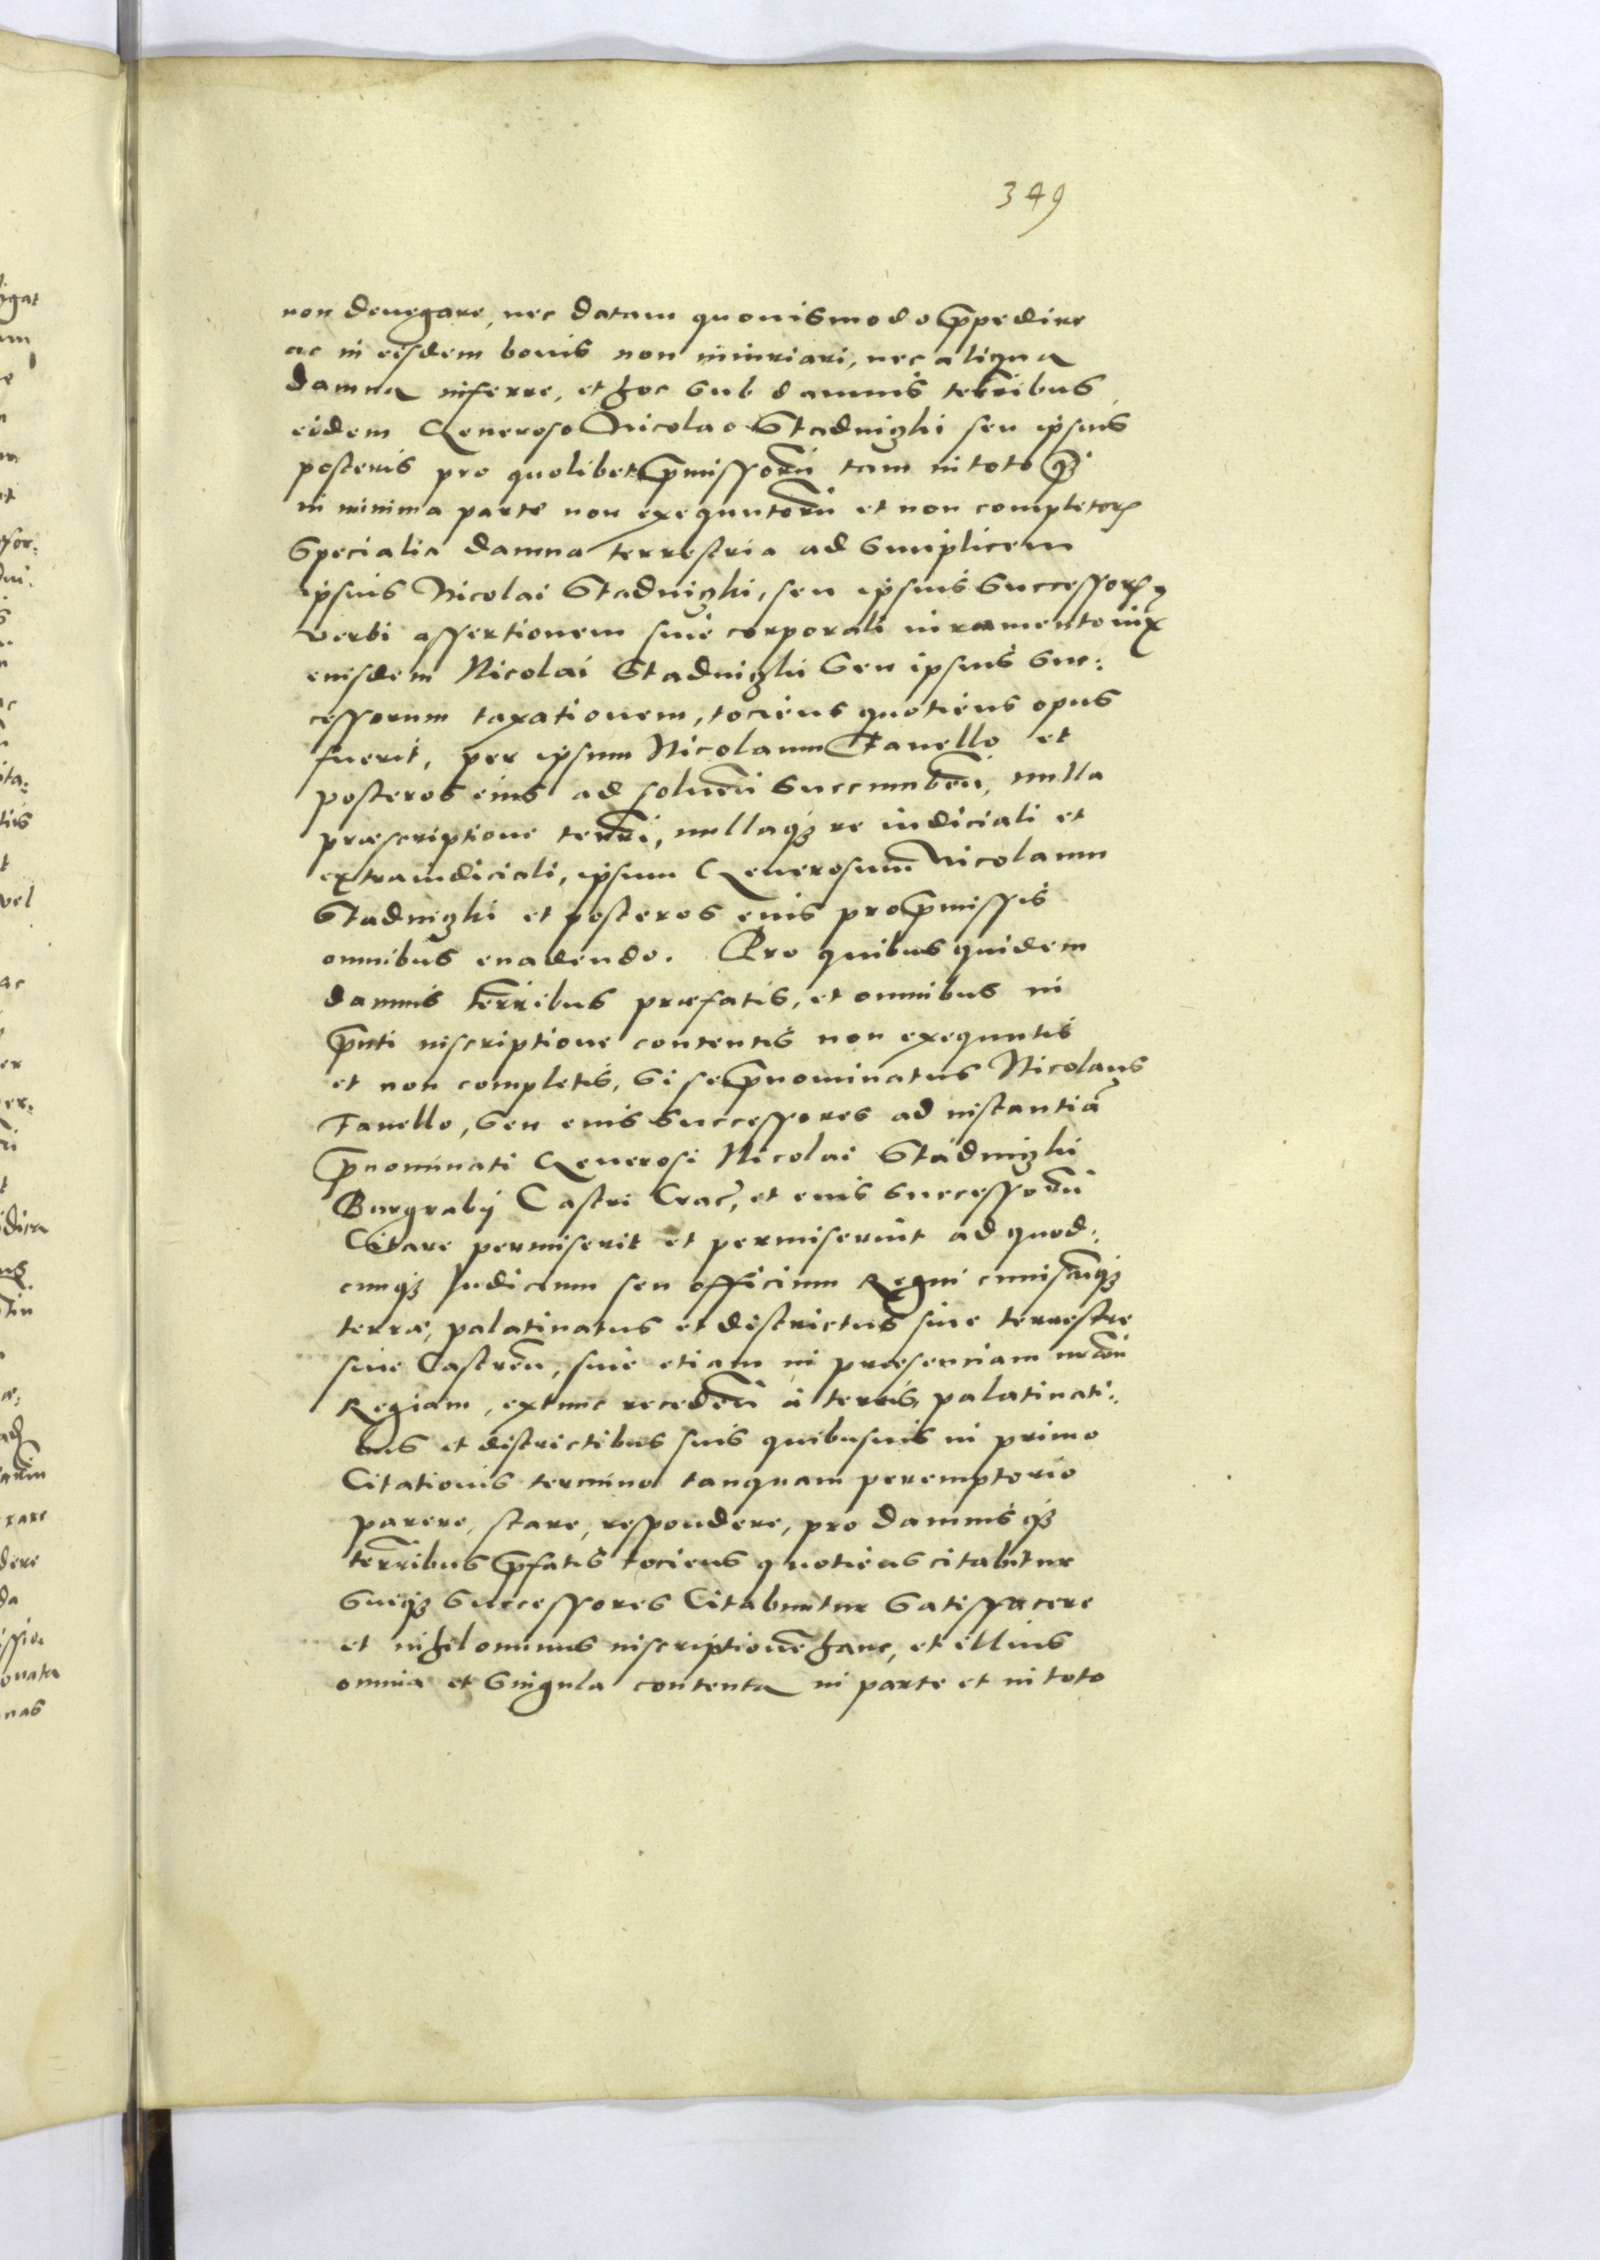 349
non denegare, nec datam quouismodo p̄pedire
ac in eisdem bonis non iniuriari, nec aliqua
damna inferre, et hoc sub damnis terr̄ibus
eidem Generoso Nicolao Stadnizki seu ipsius
posteris pro quolibet p̄missoru̅ tam in toto q̄
in minima parte non exequutoru̅ et non completor̄
Specialia damna terrestria ad Simplicem
ipsius Nicolai Stadnizki, seu ipsius Successor̄
verbi assertionem siue corporali iuramento
eiusdem Nicolai Stadnizki Seu ipsius Suc:
cessorum taxationem, tociens quotiens opus
fuerit, per ipsum Nicolaum Fanello et
posteros eius ad soluen̄ Succumben̄, nulla
præscriptione terr̄i, nullaq₃ re iudiciali et
extraiudiciali, ipsum Generosum Nicolaum
Stadnizki et posteros eius pro p̄missis
omnibus euadendo. Pro quibus quidem
damnis terr̄ibus præfatis, et omnibus in
p̄nti inscriptione contentis non exequutis
et non completis, Si se p̄nominatus Nicolaus
Fanello, Seu eius Successores ad instantia̅
p̄nominati Generosi Nicolai Stadnizki
Burgrabij Castri Crac̄, et eius Successoru̅
Citare permiserit et permiserint ad quod:
cunq₃ Judicium seu officium Regni cuiuscunq₃
terræ, palatinatus et districtus siue terrestre
siue Castren̄, siue etiam in præsenciam nr̄am
Regiam, extunc receden̄ à terris, palatinati:
bus et districtibus suis quibusuis in primo
Citationis termino tanquam peremptorio
parere, stare, respondere, pro damnis q₃
terr̄ibus p̄fatis tociens quotiens citabitur
Suiq₃ Successores Citabuntur Satisfacere
et nihilominus inscriptione̅ hanc, et illius
omnia et Singula contenta in parte et in toto